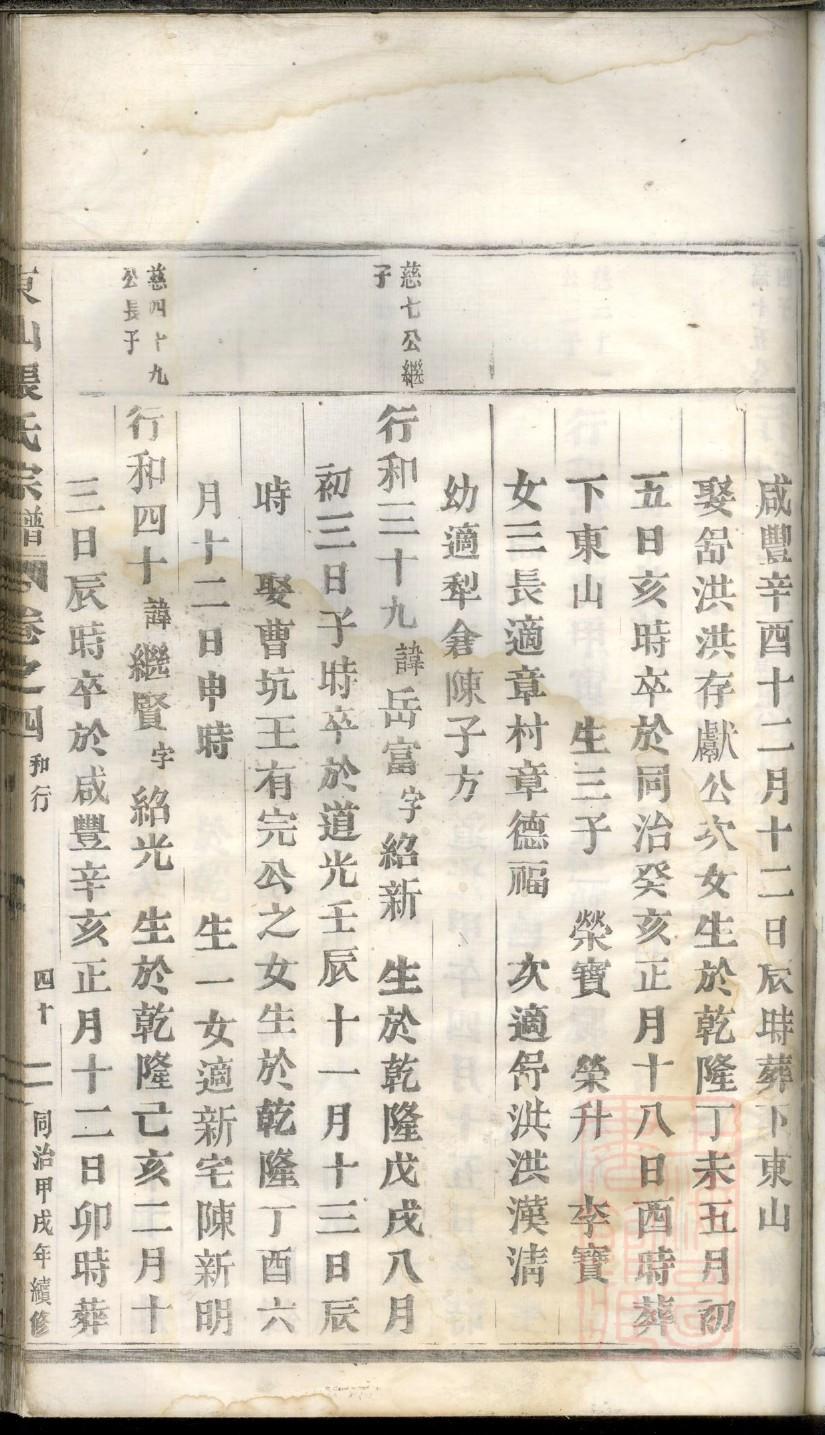 咸豐辛酉十二月十二日辰時葬下東山
娶舒洪洪存獻公次女生於乾隆丁未五月初
五日亥時卒於同治癸亥正月十八日酉時葬
下東山 生三子 榮寶 榮升 李寶
女三長適章村章德福 次適舒洪洪漢清
幼適犁倉陳子方
慈七公繼
子
行和三十九諱岳富字紹新 生於乾隆戊戌八月
初三日子時卒於道光壬辰十一月十三日辰
時 娶曹坑王有完公之女生於乾隆丁酉六
月十二日申時 生一女適新宅陳新明
慈四十九
公長子
行和四十諱繼賢字紹光 生於乾隆己亥二月十
三日辰時卒於咸豐辛亥正月十二日卯時葬
東山張氏宗譜 卷之四 和行 四十 同治甲戌年續修